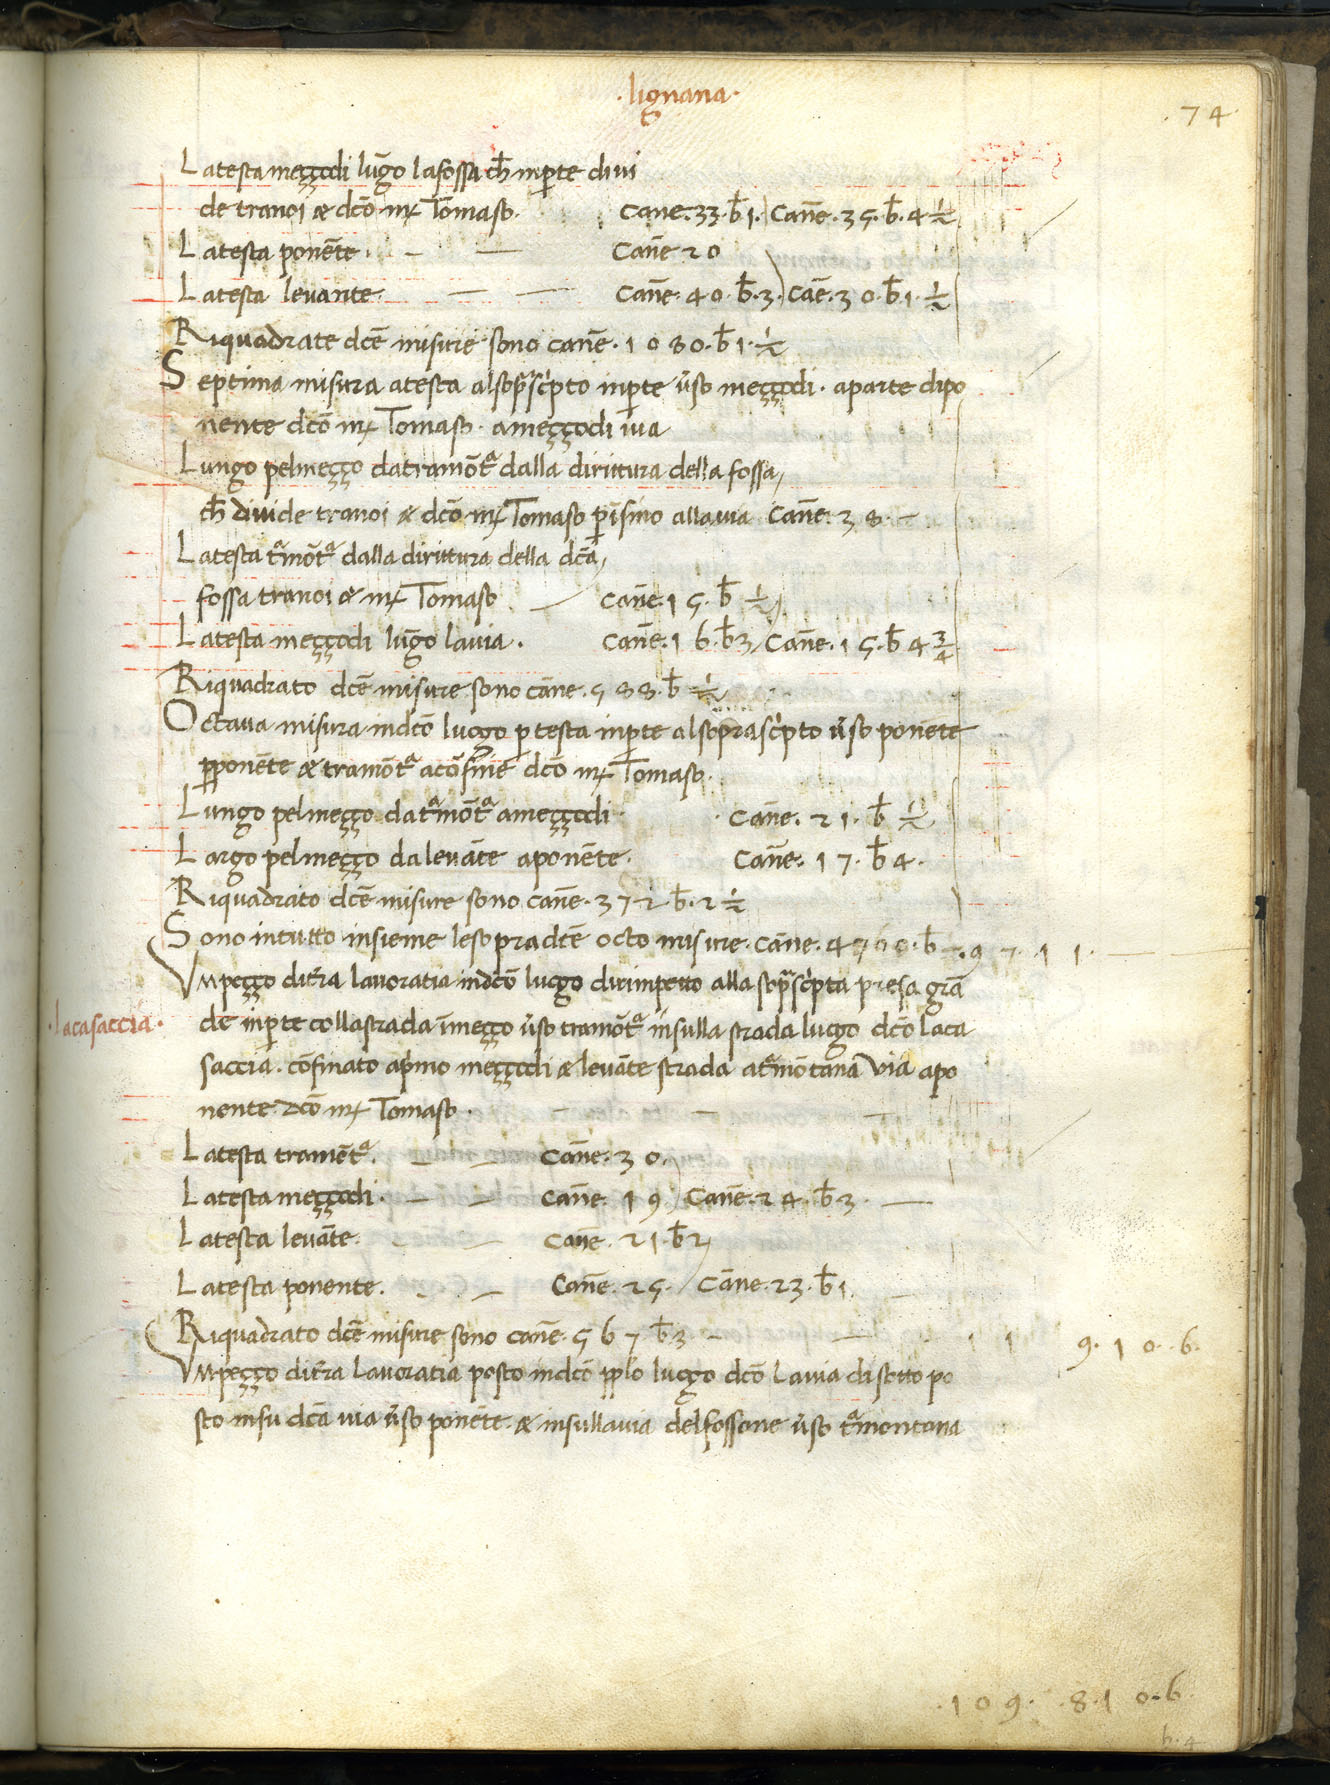 ·lignana·
·74·
Latesta meççodi lūgo lafossa ch̄ inp̄te divi
de tranoi & dcō mʳ Tomaso. Cane.33.b̄1. Cañe.35.b̄.4 ½
Latesta ponēte. – — Cañe 20
Latesta levante. — — Cañe.40.b̄.3. Cañe.30.b̄.1.½
Riquadrate dcē misure sono cañe.1080.b̄1.½
Septima misura atesta alsop̄ascp̄to inp̄te v̄so meççodi. aparte dipo
nente dcō mʳ Tomaso. ameççodi via
Lungo pelmeçço datramōtᵃ dalla dirittura della fossa
ch̄ divide tranoi & dcō mʳ Tomaso p̄isino allavia Cañe.38.—
Latesta tᵃmōtᵃ dalla dirittura della dcā
fossa tranoi & mʳ Tomaso — Cañe.15.b̄ ½
Latesta meççodi lūgo lavia. Cañe.16.b̄3 Cañe.15.b̄4 ¾
Riquadrato dcē misure sono cāne.588.b̄ ½
Octava misura indcō luogo p̄ testa inp̄te alsoprascp̄to v̄so ponēte
p̄ponēte & tramōtᵃ acōfine dcō mʳ Tomaso.
Lungo pelmeçço datᵃmōtᵃ ameççodi. Cañe.21.b̄ ½
Largo pelmeçço dalevāte aponēte. Cañe.17.b̄4.
Riquadrato dcē misure sono cañe.372.b̄.2 ½
Sono intutto insieme lesopradcē octo misure. Cāne.4760.b̄ —.9 7.11.— —
Vmpeçço dit̄ra lavoratia indcō luogo dirimpetto alla sop̄ascp̄ta presa grā
·lacasaccia·
de inp̄te collastrada īmeçço v̄so tramōtᵃ insulla strada luogo dcō laca
saccia. cōfinato ap̄mo meççodi & levāte strada atᵃmōtana via apo
nente dcō mʳ Tomaso. — — —
Latesta tramōtᵃ. — — Cañe.30.
Latesta meççodi. — — Cañe. 19 Cañe.24.b̄3. —
Latesta levāte. — — Cañe.21.b̄2
Latesta ponente. — — Cañe.25. Cāne.23.b̄1. —
Riquadrato dcē misure sono cañe.567 b̄3. — — 11 9.10.6.
Vmpeçço dit̄ra lavoratia posto indcō pp̄lo luogo dcō Lavia disotto po
sto insu dcā via v̄so ponēte & insullavia delfossone v̄so tᵃmontana
.109. .8.10.6.
b.4